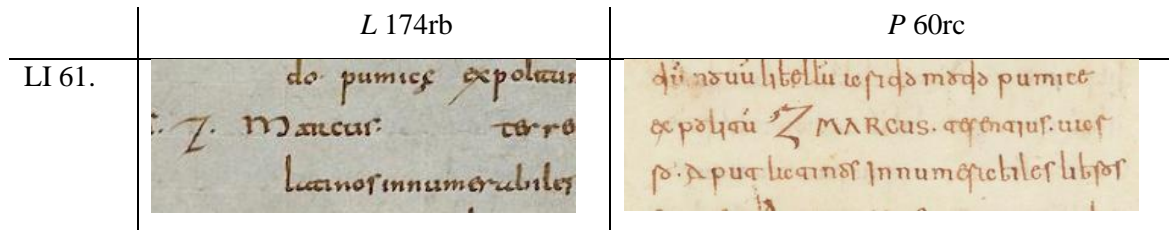 L 174rb P 60rc
LI 61.
do pumicę expolitum
Z. Marcus. terre
latinos innumerabiles
libellū
modo pumice
expolitū Z MARCUS. terentius. uir
ro. Aput latinos Innumerabiles libros